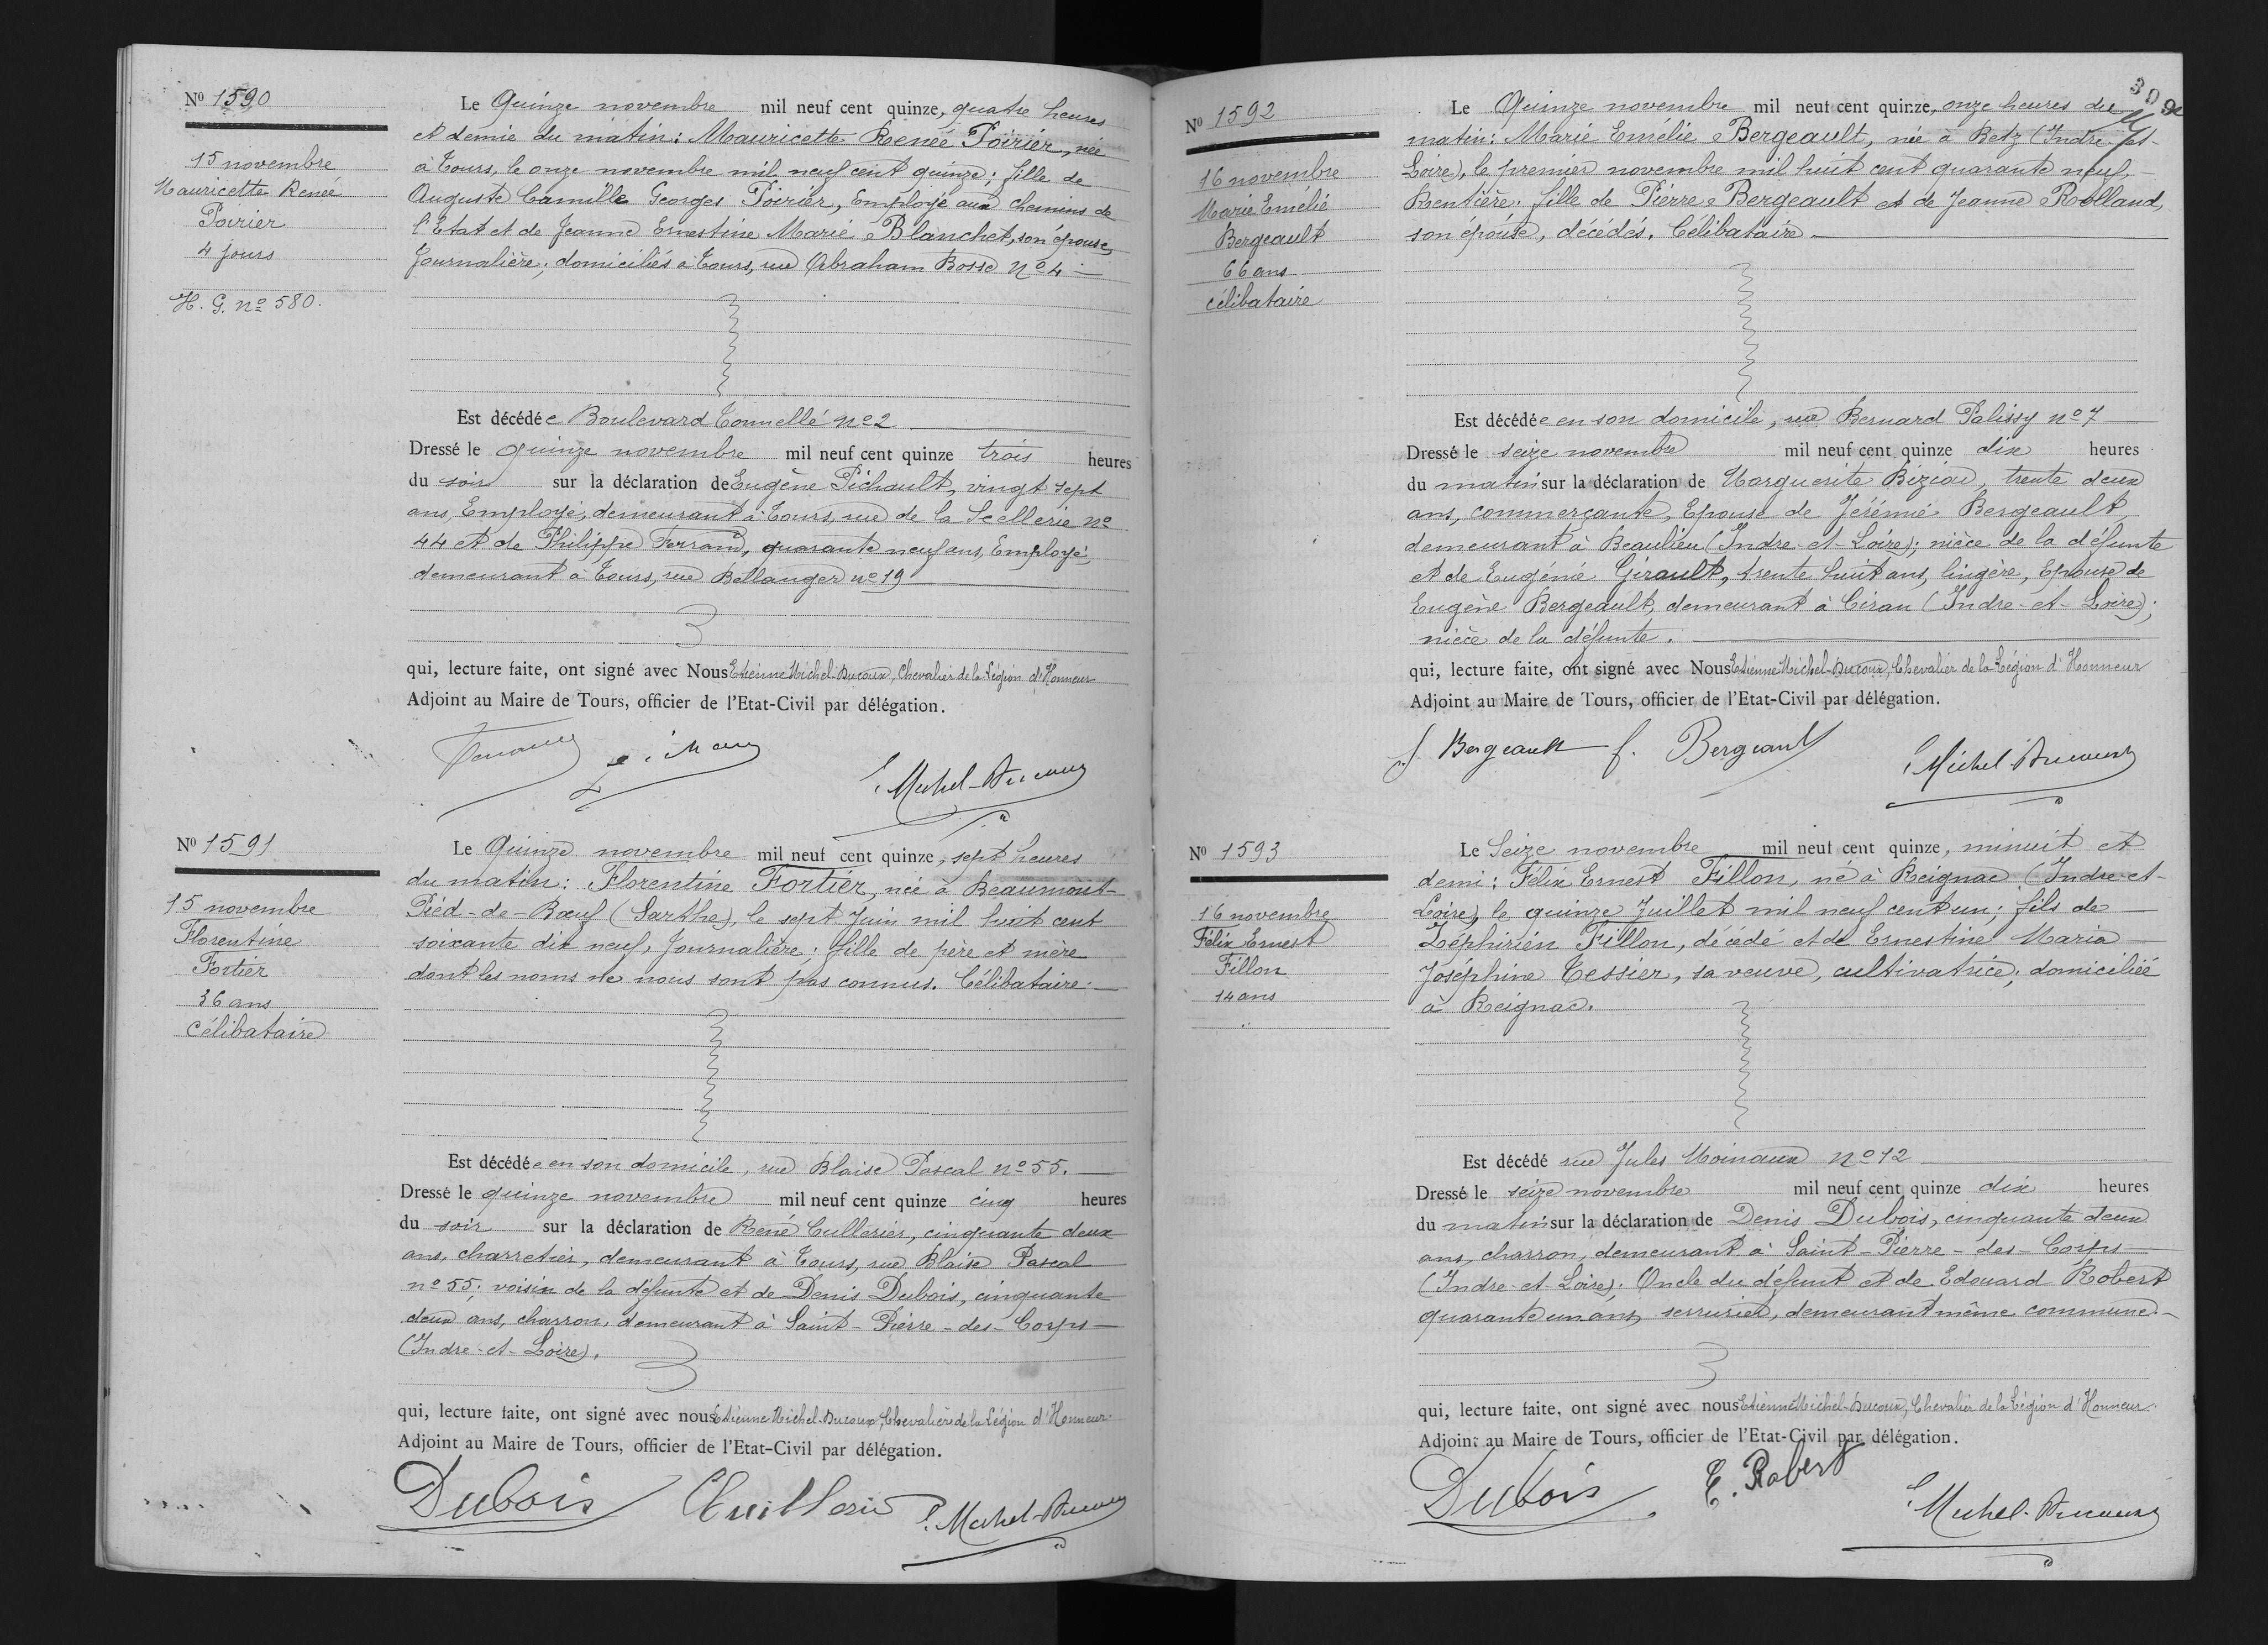 Nº 1590
15 novembre
Mauricette Renée
Poirier
4 jours
H. G. nº 580.
Le Quinze novembre mil neuf cent quinze, quatre heures
et demie du matin: Mauricette Renée Poirier, née
à Tours, le onze novembre mil neuf cent quinze; fille de
Auguste Camille Georges Poirier, Employé aux chemins de
l'Etat et de Jeanne Ernestine Marie Blanchet, son épouse,
Journalière, domiciliés à Tours, rue Abraham Bosse nº 4
Est décédée Boulevard Tonnellé nº 2
Dressé le quinze novembre mil neuf cent quinze trois heures
du soir sur la déclaration de Eugène Pichault, vingt sept
ans, Employé, demeurant à Tours, rue de la Scellerie nº
44 et de Philippe Ferrand, quarante neuf ans, Employé,
demeurant à Tours, rue Bellanger nº 19
qui, lecture faite, ont signé avec Nous Etienne Michel-Ducoux, Chevalier de la Légion d'Honneur
Adjoint au Maire de Tours, officier de l'Etat-Civil par délégation.
E. Michel-Ducoux
Nº 1591
15 novembre
Florentine
Fortier
36 ans
célibataire
Le Quinze novembre mil neuf cent quinze, sept heures
du matin: Florentine Fortier, née à Beaumont-
Pied-de-Bœuf (Sarthe), le sept Juin mil huit cent
soixante dix neuf, Journalière; fille de père et mère
dont les noms ne nous sont pas connus. Célibataire.
Est décédée en son domicile, rue Blaise Pascal nº 55.
Dressé le quinze novembre mil neuf cent quinze cinq heures
du soir sur la déclaration de René Cullerier, cinquante deux
ans, charretier, demeurant à Tours, rue Blaise Pascal
nº 55; voisin de la défunte et de Denis Dubois, cinquante
deux ans, charron, demeurant à Saint-Pierre-des-Corps
(Indre-et-Loire).
qui, lecture faite, ont signé avec nous Etienne Michel-Ducoux, Chevalier de la Légion d'Honneur
Adjoint au Maire de Tours, officier de l'Etat-Civil par délégation.
Dubois E. Michel-Ducoux
309
Nº 1592
16 novembre
Marie Emélie
Bergeault
66 ans
célibataire
Le Quinze novembre mil neuf cent quinze, onze heures du
matin: Marie Emélie Bergeault, née à Betz (Indre-et-
Loire), le premier novembre mil huit cent quarante neuf,
Rentière; fille de Pierre Bergeault et de Jeanne Rolland,
son épouse, décédés. Célibataire.
Est décédée en son domicile, rue Bernard Palissy nº 7
Dressé le seize novembre mil neuf cent quinze dix heures
du matin sur la déclaration de Marguerite Béziau, trente deux
ans, commerçante, Epouse de Jérémie Bergeault,
demeurant à Beaulieu (Indre-et-Loire); nièce de la défunte
et de Eugénie Girault, trente huit ans, lingère, Epouse de
Eugène Bergeault, demeurant à Ciran (Indre-et-Loire);
nièce de la défunte.
qui, lecture faite, ont signé avec Nous Etienne Michel-Ducoux, Chevalier de la Légion d'Honneur
Adjoint au Maire de Tours, officier de l'Etat-Civil par délégation.
J. Bergeault f. Bergeault E. Michel-Ducoux
Nº 1593
16 novembre
Félix Ernest
Fillon
14 ans
Le Seize novembre mil neuf cent quinze, minuit et
demi: Félix Ernest Fillon, né à Reignac (Indre-et-
Loire), le quinze Juillet mil neuf cent un; fils de
Zéphirien Fillon, décédé et de Ernestine Maria
Joséphine Tessier, sa veuve, cultivatrice; domiciliée
à Reignac.
Est décédé rue Jules Moinaux nº 12
Dressé le seize novembre mil neuf cent quinze dix heures
du matin sur la déclaration de Denis Dubois, cinquante deux
ans, charron, demeurant à Saint-Pierre-des-Corps
(Indre-et-Loire); Oncle du défunt et de Edouard Robert
quarante un ans, serrurier, demeurant même commune.
qui, lecture faite, ont signé avec nous Etienne Michel-Ducoux, Chevalier de la Légion d'Honneur.
Adjoint au Maire de Tours, officier de l'Etat-Civil par délégation.
Dubois E. Robert E. Michel-Ducoux